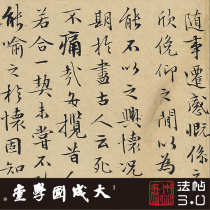 隨事遷感慨係之
欣俛仰之閒以為
能不以之興懷況
期於盡古人云死
不痛哉每攬昔
若合一契未嘗不
能喻之於懷固知
大成國學堂
法帖
3.0